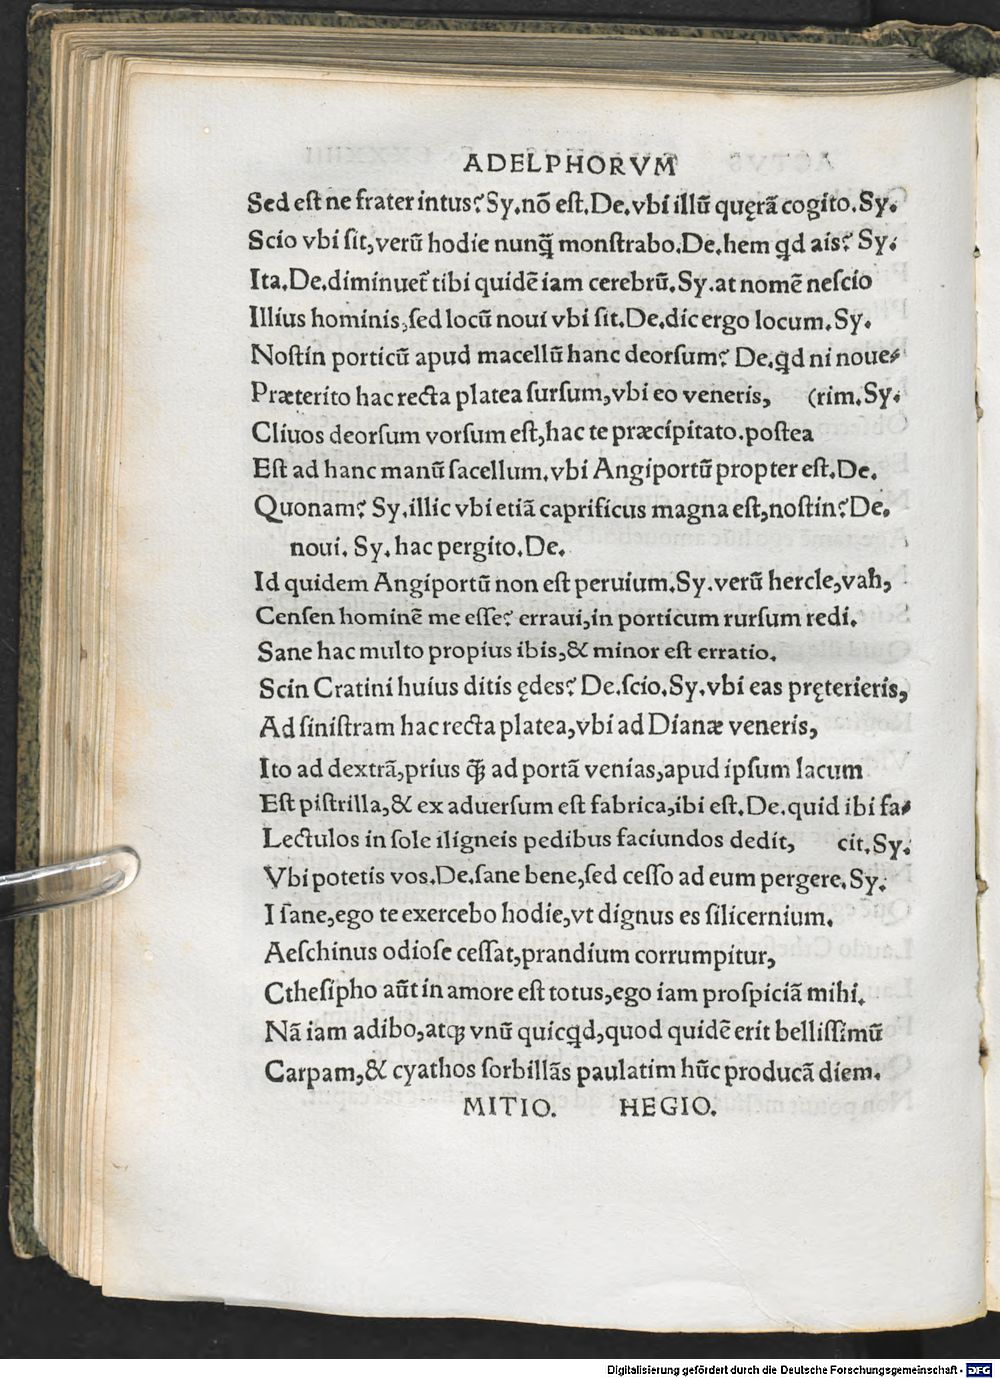 ADELPHORVM
Sed eſt ne frater intus? Sy. nõ eſt. De. vbi illũ quęrã cogito. Sy.
Scio vbi ſit, verũ hodie nunꝗ̃ monſtrabo. De. hem ꝗd ais? Sy.
Ita. De. diminuet̃ tibi quidẽ iam cerebrũ. Sy. at nomẽ neſcio
Illius hominis, ſed locũ noui vbi ſit. De. dic ergo locum. Sy.
Noſtin porticũ apud macellũ hanc deorſum? De. ꝗd ni noue⸗
Præterito hac recta platea ſurſum, vbi eo veneris, (rim. Sy.
Cliuos deorſum vorſum eſt, hac te præcipitato. poſtea
Eſt ad hanc manũ ſacellum. vbi Angiportũ propter eſt. De.
Quonam? Sy. illic vbi etiã caprificus magna eſt, noſtin? De.
noui. Sy. hac pergito. De.
Id quidem Angiportũ non eſt peruium. Sy. verũ hercle, vah,
Cenſen hominẽ me eſſe? erraui, in porticum rurſum redi.
Sane hac multo propius ibis, & minor eſt erratio.
Scin Cratini huius ditis ędes? De. ſcio. Sy. vbi eas pręterieris,
Ad ſiniſtram hac recta platea, vbi ad Dianæ veneris,
Ito ad dextrã, prius ꝗ̃ ad portã venias, apud ipſum lacum
Eſt piſtrilla, & ex aduerſum eſt fabrica, ibi eſt. De. quid ibi fa⸗
Lectulos in ſole iligneis pedibus faciundos dedit, cit. Sy.
Vbi potetis vos. De. ſane bene, ſed ceſſo ad eum pergere. Sy.
I ſane, ego te exercebo hodie, vt dignus es ſilicernium.
Aeſchinus odioſe ceſſat, prandium corrumpitur,
Ctheſipho aũt in amore eſt totus, ego iam proſpiciã mihi.
Nã iam adibo, atqꝫ vnũ quicꝗd, quod quidẽ erit belliſſimũ
Carpam, & cyathos ſorbillãs paulatim hũc producã diem.
MITIO. HEGIO.
Digitalisierung gefördert durch die Deutsche Forschungsgemeinschaft - DFG